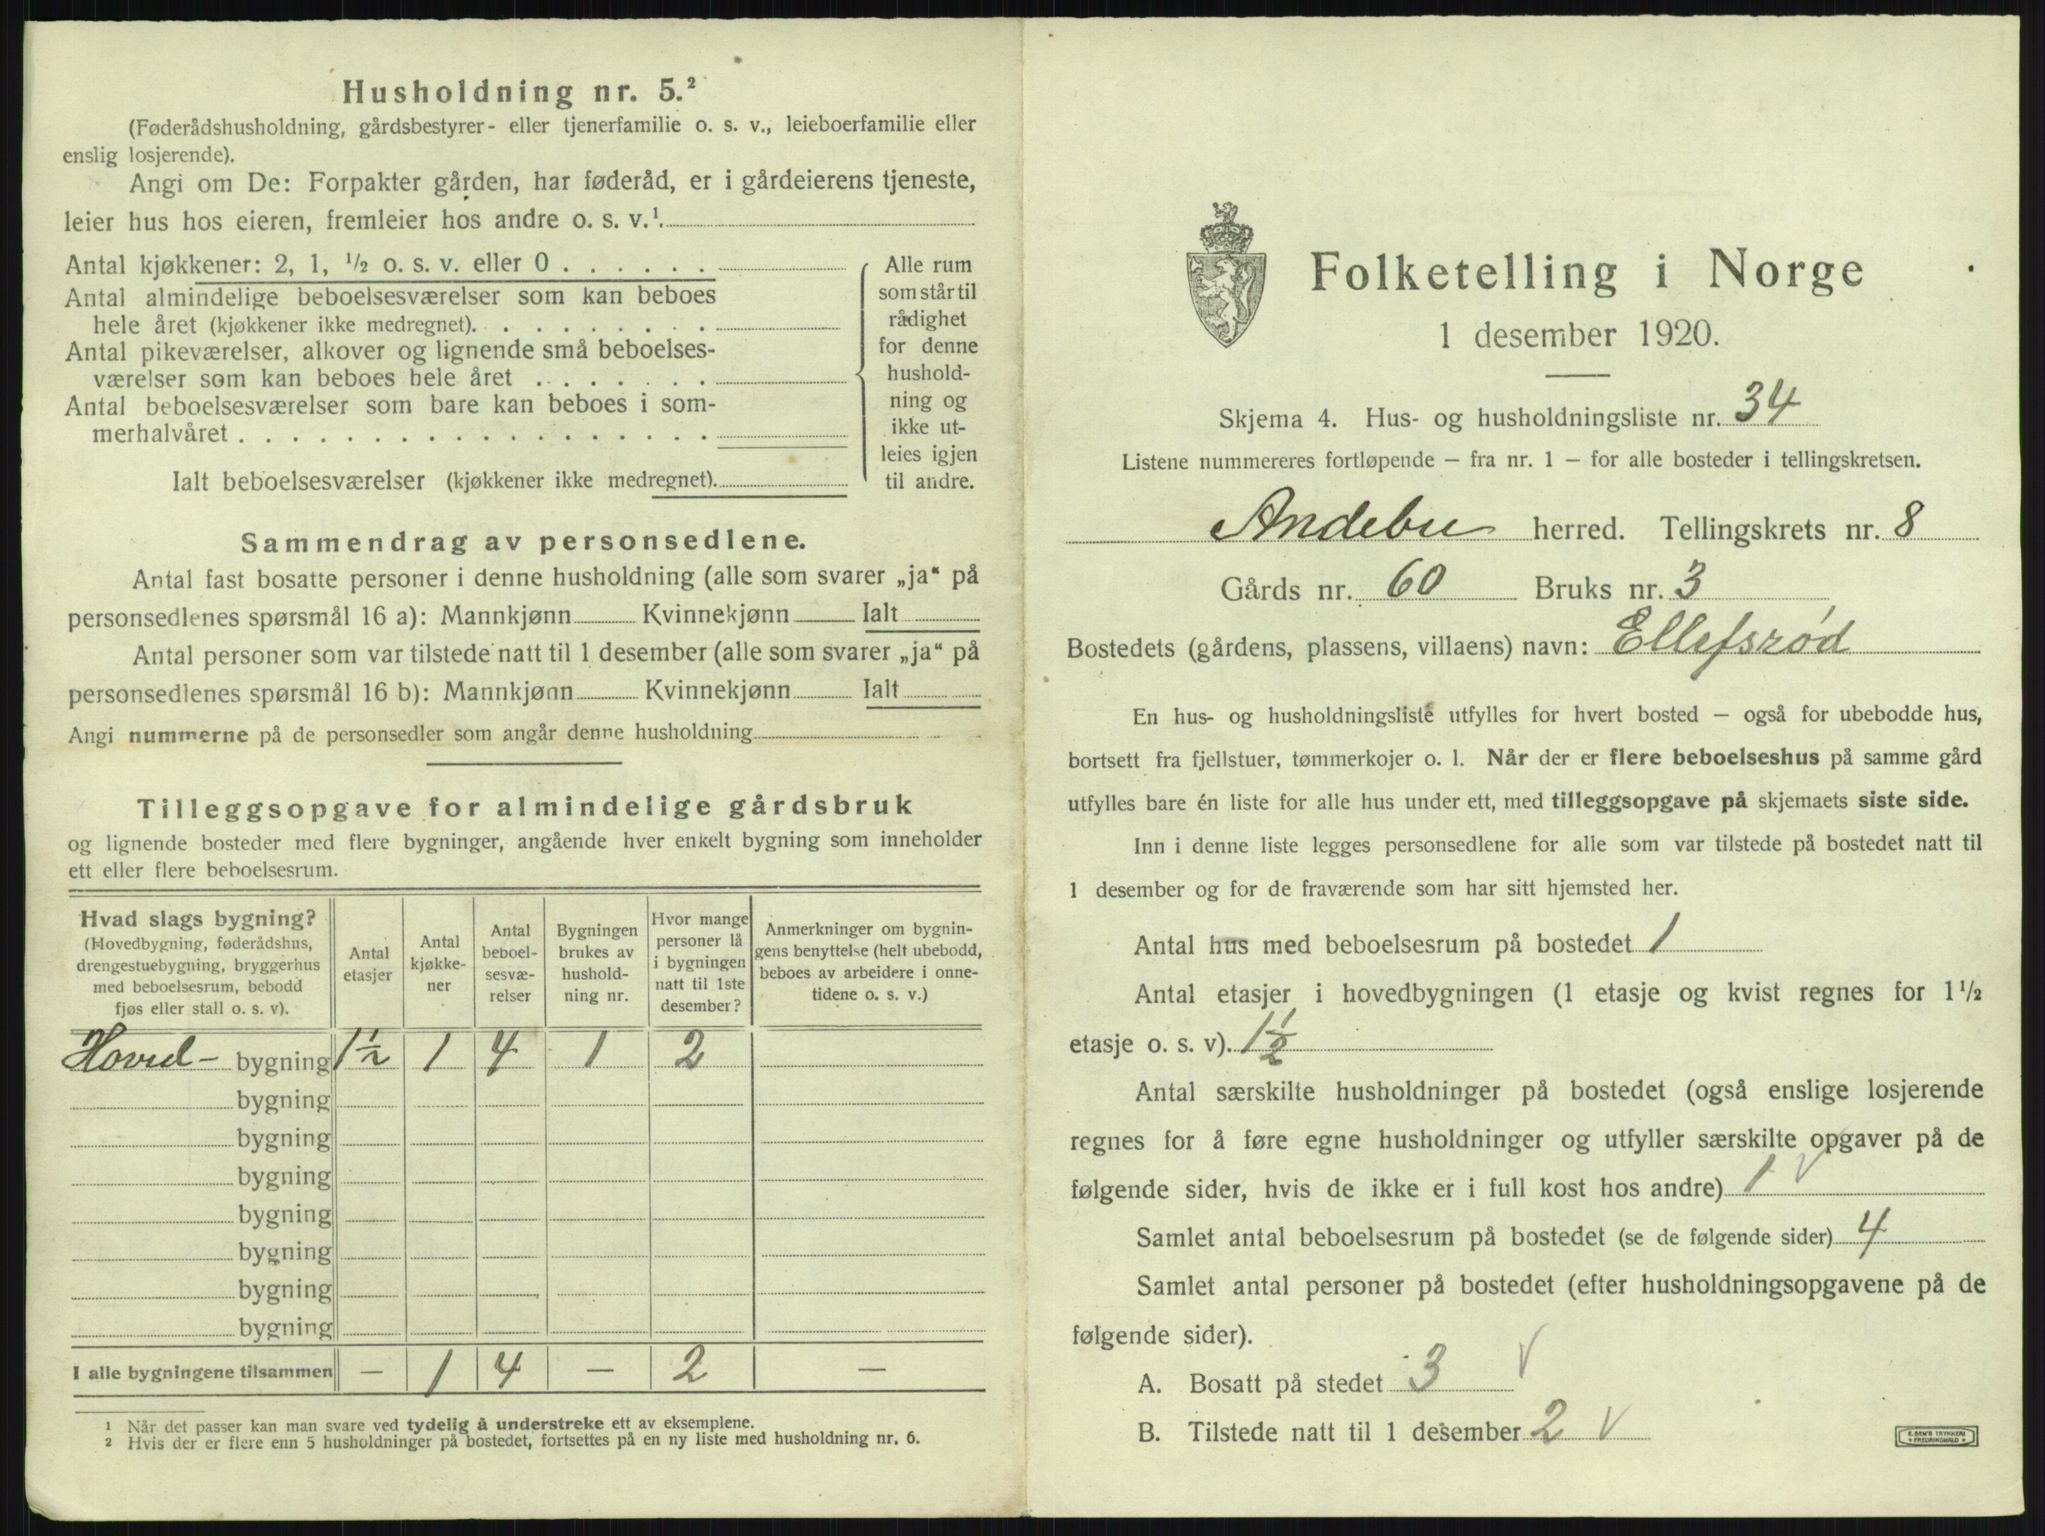 Husholdning nr. 5.²
(Føderådshusholdning, gårdsbestyrer- eller tjenerfamilie o. s. v., leieboerfamilie eller
enslig losjerende).
Angi om De: Forpakter gården, har føderåd, er i gårdeierens tjeneste,
leier hus hos eieren, fremleier hos andre o. s. v.¹.
Antal kjøkkener: 2, 1, ½ o. s. v. eller 0 . . . . . .
Antal almindelige beboelsesværelser som kan beboes
hele året (kjøkkener ikke medregnet). . . . . . . . .
Antal pikeværelser, alkover og lignende små beboelses-
værelser som kan beboes hele året . . . . . . .
Antal beboelsesværelser som bare kan beboes i som-
merhalvåret . . . . . . . . . . . . . . . . . .
Ialt beboelsesværelser (kjøkkener ikke medregnet).
Alle rum
som står til
rådighet
for denne
hushold-
ning og
ikke ut-
leies igjen
til andre.
Sammendrag av personsedlene.
Antal fast bosatte personer i denne husholdning (alle som svarer „ja“ på
personsedlenes spørsmål 16 a): Mannkjønn Kvinnekjønn Ialt
Antal personer som var tilstede natt til 1 desember (alle som svarer „ja“ på
personsedlenes spørsmål 16 b): Mannkjønn Kvinnekjønn Ialt
Angi nummerne på de personsedler som angår denne husholdning
Tilleggsopgave for almindelige gårdsbruk
og lignende bosteder med flere bygninger, angående hver enkelt bygning som inneholder
ett eller flere beboelsesrum.
Hvad slags bygning?
(Hovedbygning, føderådshus,
drengestuebygning, bryggerhus
med beboelsesrum, bebodd
fjøs eller stall o. s. v).
Antal
etasjer
Antal
kjøkke-
ner
Antal
beboel-
sesvæ-
relser
Bygningen
brukes av
hushold-
ning nr.
Hvor mange
personer lå
i bygningen
natt til 1ste
desember?
Anmerkninger om bygnin-
gens benyttelse (helt ubebodd,
beboes av arbeidere i onne-
tidene o. s. v.)
Hoved- bygning 1½ 1 4 1 2
bygning
bygning
bygning
bygning
bygning
bygning
bygning
I alle bygningene tilsammen — 1 4 — 2 —
¹ Når det passer kan man svare ved tydelig å understreke ett av eksemplene.
² Hvis der er flere enn 5 husholdninger på bostedet, fortsettes på en ny liste med husholdning nr. 6.
Folketelling i Norge
1 desember 1920.
Skjema 4. Hus- og husholdningsliste nr. 34
Listene nummereres fortløpende — fra nr. 1 — for alle bosteder i tellingskretsen.
Andebu herred. Tellingskrets nr. 8
Gårds nr. 60 Bruks nr. 3
Bostedets (gårdens, plassens, villaens) navn: Ellefsrød
En hus- og husholdningsliste utfylles for hvert bosted — også for ubebodde hus,
bortsett fra fjellstuer, tømmerkojer o. l. Når der er flere beboelseshus på samme gård
utfylles bare én liste for alle hus under ett, med tilleggsopgave på skjemaets siste side.
Inn i denne liste legges personsedlene for alle som var tilstede på bostedet natt til
1 desember og for de fraværende som har sitt hjemsted her.
Antal hus med beboelsesrum på bostedet 1
Antal etasjer i hovedbygningen (1 etasje og kvist regnes for 1½
etasje o. s. v). 1½
Antal særskilte husholdninger på bostedet (også enslige losjerende
regnes for å føre egne husholdninger og utfyller særskilte opgaver på de
følgende sider, hvis de ikke er i full kost hos andre) 1 √
Samlet antal beboelsesrum på bostedet (se de følgende sider) 4
Samlet antal personer på bostedet (efter husholdningsopgavene på de
følgende sider).
A. Bosatt på stedet 3 √
B. Tilstede natt til 1 desember 2 √
E. SEM'S TRYKKERI
FREDRIKSHALD